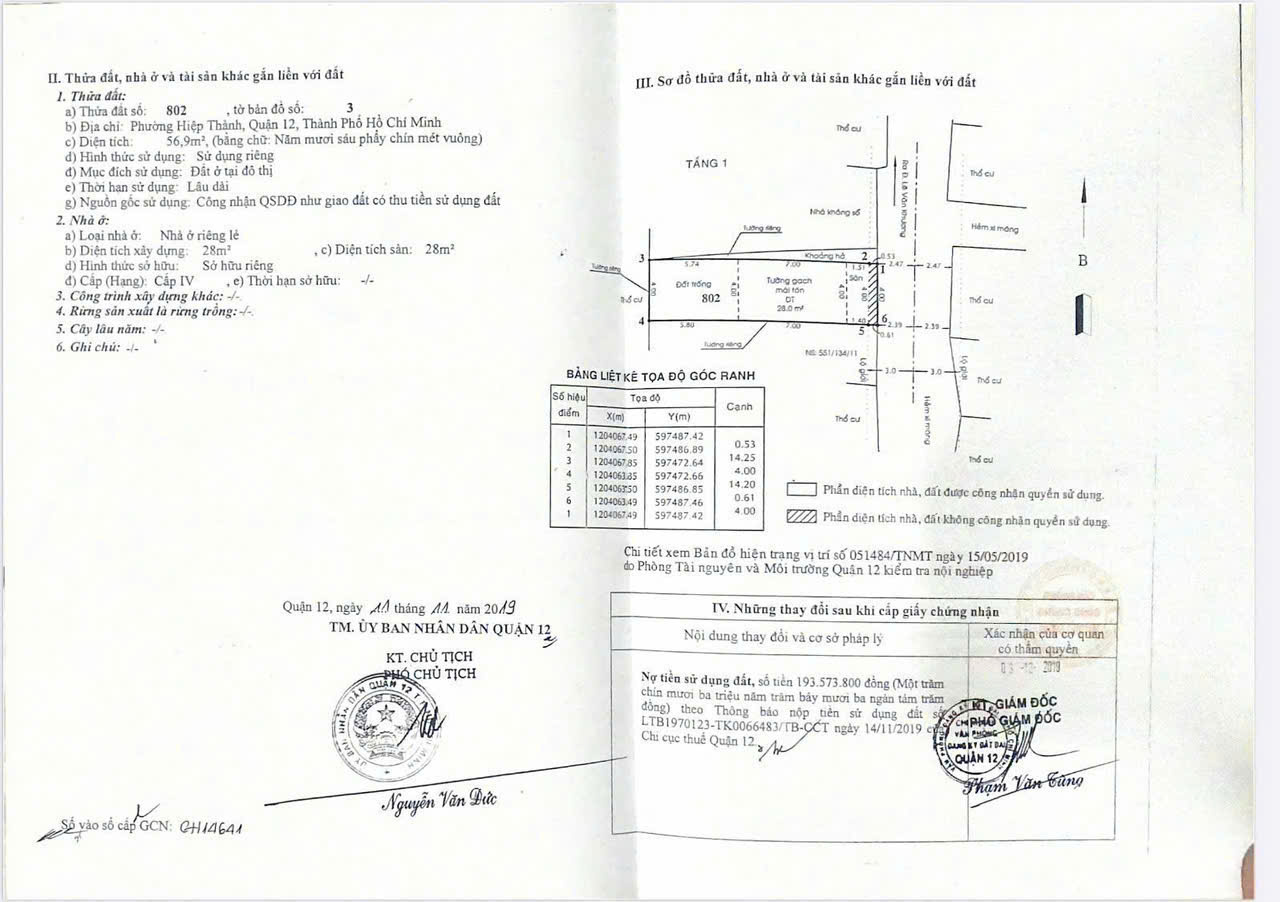 II. Thửa đất, nhà ở và tài sản khác gắn liền với đất
1. Thửa đất:
a) Thửa đất số: 802 , tờ bản đồ số: 3
b) Địa chỉ: Phường Hiệp Thành, Quận 12, Thành Phố Hồ Chí Minh
c) Diện tích: 56,9m², (bằng chữ: Năm mươi sáu phẩy chín mét vuông)
d) Hình thức sử dụng: Sử dụng riêng
đ) Mục đích sử dụng: Đất ở tại đô thị
e) Thời hạn sử dụng: Lâu dài
g) Nguồn gốc sử dụng: Công nhận QSDĐ như giao đất có thu tiền sử dụng đất
2. Nhà ở:
a) Loại nhà ở: Nhà ở riêng lẻ
b) Diện tích xây dựng: 28m² , c) Diện tích sàn: 28m²
d) Hình thức sở hữu: Sở hữu riêng
đ) Cấp (Hạng): Cấp IV , e) Thời hạn sở hữu: -/-
3. Công trình xây dựng khác: -/-.
4. Rừng sản xuất là rừng trồng: -/-.
5. Cây lâu năm: -/-
6. Ghi chú: -/-
Quận 12, ngày 11 tháng 11 năm 2019
TM. ỦY BAN NHÂN DÂN QUẬN 12
KT. CHỦ TỊCH
PHÓ CHỦ TỊCH
Nguyễn Văn Đức
Số vào sổ cấp GCN: CH14641
III. Sơ đồ thửa đất, nhà ở và tài sản khác gắn liền với đất
TẦNG 1
Thổ cư
Ra Đ. Lê Văn Khương
Thổ cư
Nhà không số
Hẻm xi măng
Tường riêng
Khoảng hở
2
0.53
3
5.74
7.00
1.51
1
2.47
2.47
B
Tường riêng
Thổ cư
4.00
Đất trống
802
4.00
Tường gạch
mái tôn
DT
28.0 m²
4.00
Sân
4.00
4.00
Thổ cư
4
5.80
7.00
1.40
5
6
0.61
2.39
2.39
Tường riêng
NS: 551/134/11
Lộ giới
3.0
3.0
Lộ giới
Thổ cư
Thổ cư
Hẻm xi măng
Thổ cư
BẢNG LIỆT KÊ TỌA ĐỘ GÓC RANH
Số hiệu điểm Tọa độ Cạnh
X(m) Y(m)
1 1204067.49 597487.42
0.53
2 1204067.50 597486.89
14.25
3 1204067.85 597472.64
4.00
4 1204063.85 597472.66
14.20
5 1204063.50 597486.85
0.61
6 1204063.49 597487.46
4.00
1 1204067.49 597487.42
Phần diện tích nhà, đất được công nhận quyền sử dụng.
Phần diện tích nhà, đất không công nhận quyền sử dụng.
Chi tiết xem Bản đồ hiện trạng vị trí số 051484/TNMT ngày 15/05/2019
do Phòng Tài nguyên và Môi trường Quận 12 kiểm tra nội nghiệp
IV. Những thay đổi sau khi cấp giấy chứng nhận
Nội dung thay đổi và cơ sở pháp lý
Xác nhận của cơ quan
có thẩm quyền
03 -12- 2019
Nợ tiền sử dụng đất, số tiền 193.573.800 đồng (Một trăm
chín mươi ba triệu năm trăm bảy mươi ba ngàn tám trăm
đồng) theo Thông báo nộp tiền sử dụng đất số
LTB1970123-TK0066483/TB-CCT ngày 14/11/2019 của
Chi cục thuế Quận 12.
KT. GIÁM ĐỐC
PHÓ GIÁM ĐỐC
CHI NHÁNH
VĂN PHÒNG
ĐĂNG KÝ ĐẤT ĐAI
QUẬN 12
Phạm Văn Tùng